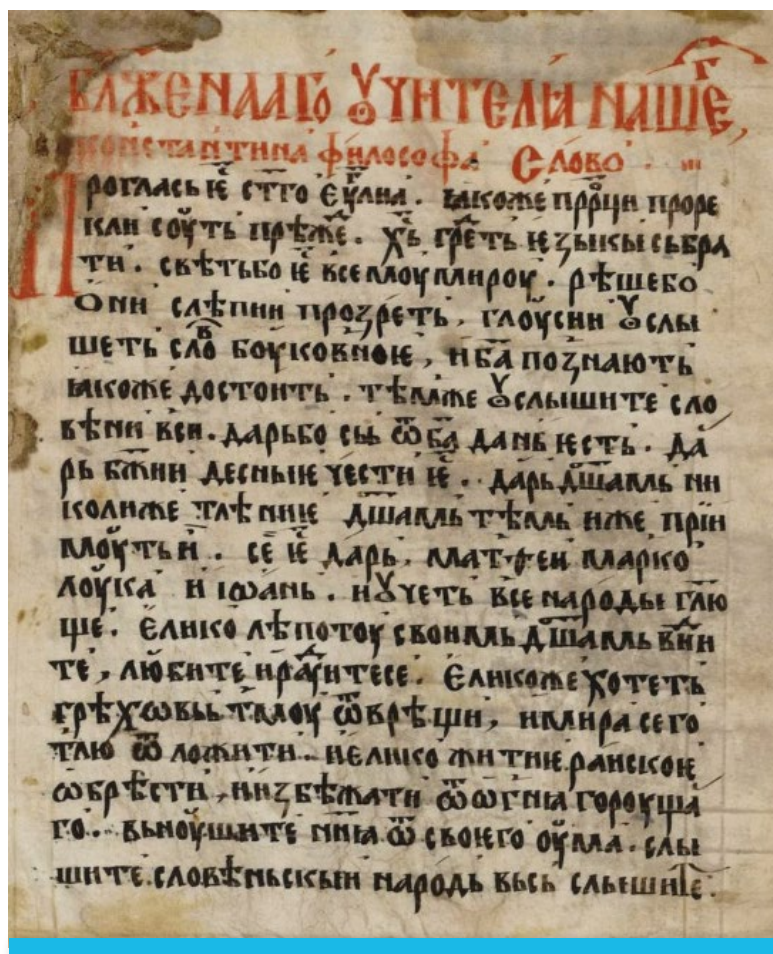 БЛАЖЕНААГО ꙊЧИТЕЛꙖ НАШЕГ,
констаньтина философа Слово
Прогласъ ѥ҆ ст҃го єѵ҃лиꙗ. ꙗкоже прⷪ҇рци проре
кли соуть прѣжⷣе. х҃ь греⷣть ѥзыкы сьбра
ти. свѣтьбо ѥ҆ всемоу мироу. рѣшебо
ѻни слѣпии прозреть. глоусии ꙋслы
шеть слоⷡ боуковноѥ, и б҃а познають
ꙗкоже достоить. тѣмже ꙋслышите сло
вѣни вси. дарьбо сьы ѿ б҃а дань ѥсть. да
рь бж҃ии десныѥ чести ѥ҆. дарь дш҃амь ни
колиже тлѣниѥ дш҃амь тѣмь иже прїи
моуть и. се ѥ҆ дарь. матѳеи марко
лоука и іѡань. и ꙋчеть все народы гл҃ю
ще. єлико лѣпотоу своимь дш҃амь виⷣи
те, любите и раⷣуитесе. єликоже хотеть
грѣхѡвьы тмоу ѿврѣщи, и мира сего
тлю ѿложити. и ѥлико житиѥ раискоѥ
ѡбрѣсти, и избѣжати ѿ ѡгнꙗ гороуща
го. вьноушите нн҃ꙗ ѿ своѥго оума. слы
шите словѣньскыи народь вьсь слышите.